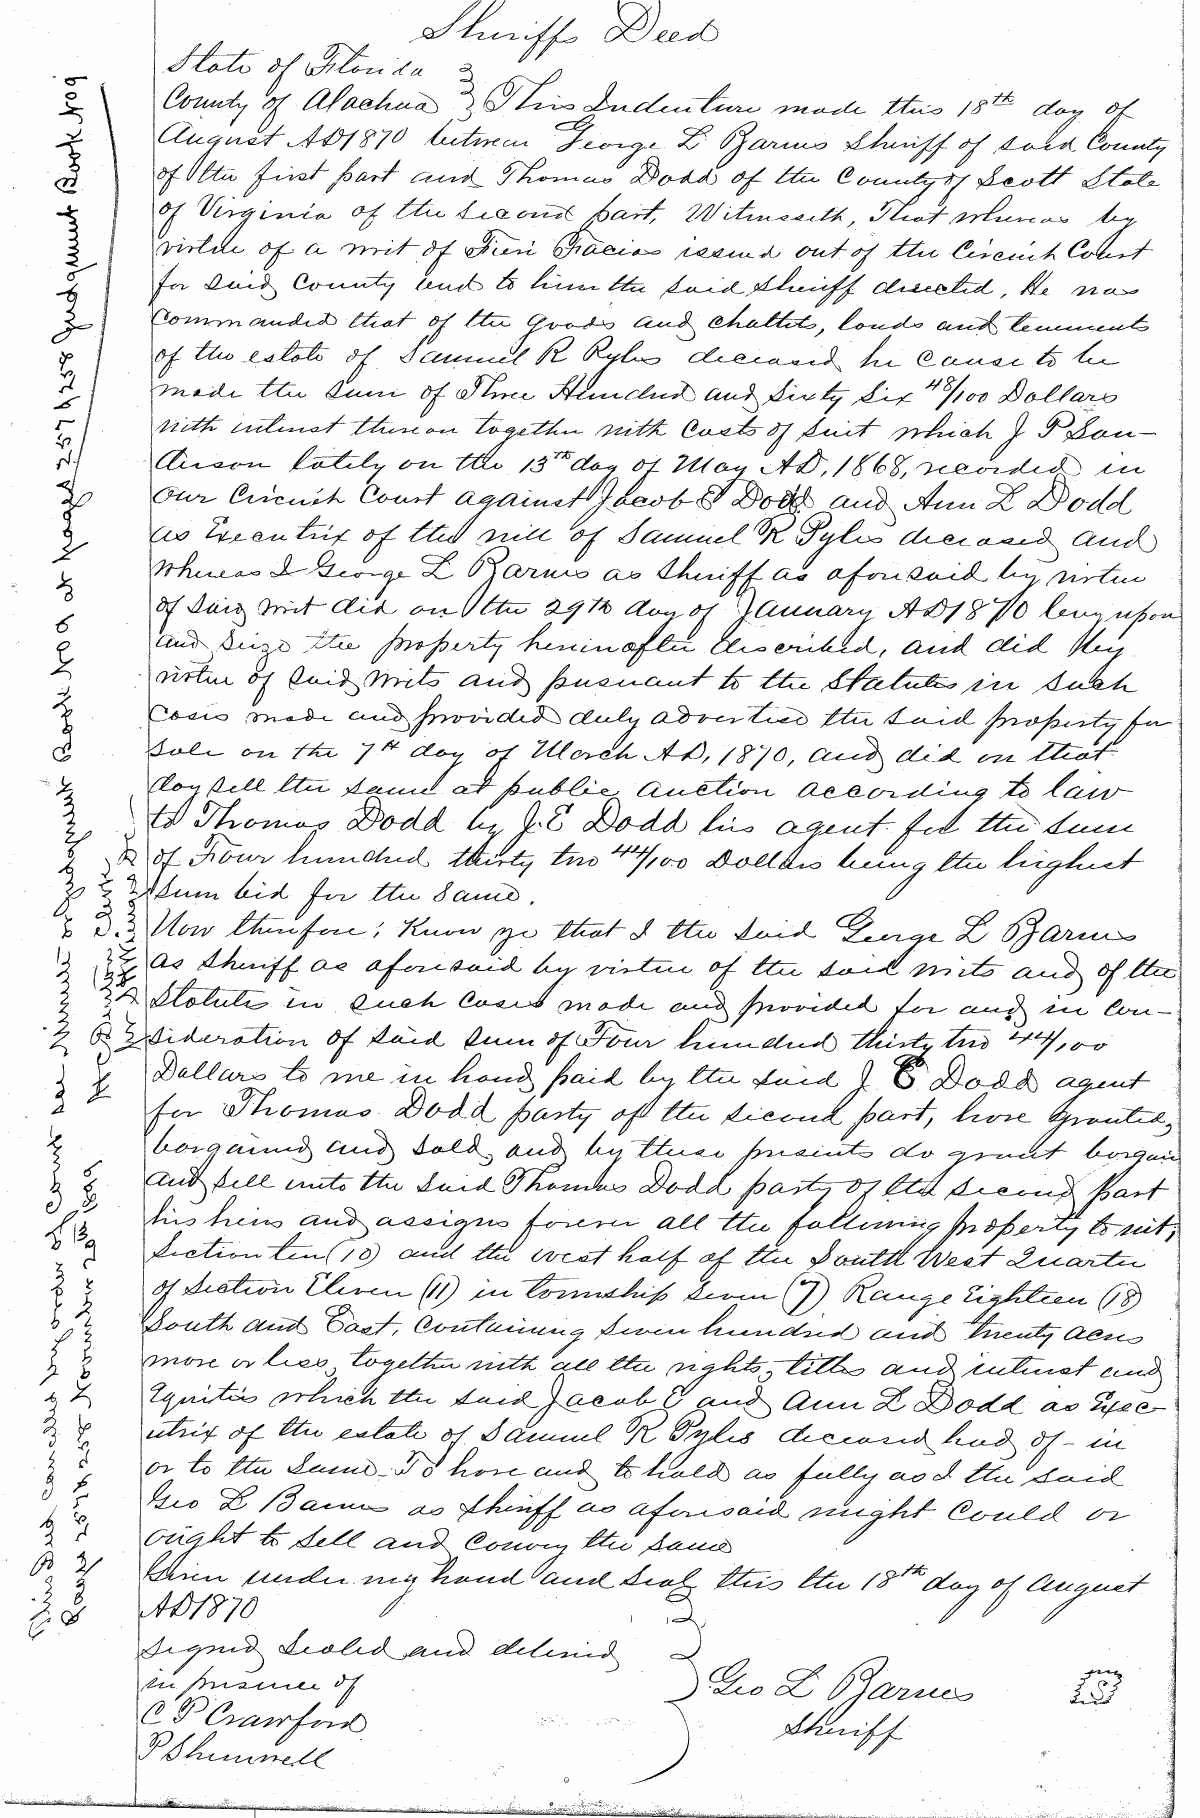 Sheriffs Deed
State of Florida
County of Alachua } This Indenture made this 18th day of
August AD 1870 between George L Barnes Sheriff of said County
of the first part and Thomas Dodd of the County of Scott State
of Virginia of the second part, Witnesseth, That whereas by
virtue of a writ of Fieri Facias issued out of the Circuit Court
for said County and to him the said Sheriff directed, He was
Commanded that of the goods and chattles, lands and tenements
of the estate of Samuel R Pyles deceased he cause to be
made the sum of Three Hundred and Sixty Six 48/100 Dollars
with interest thereon together with costs of suit which J P San-
derson lately on the 13th day of May AD, 1868, recorded in
our Circuit Court against Jacob E Dodd and Ann L Dodd
as Executrix of the will of Samuel R Pyles deceased and
whereas I George L Barnes as Sheriff as aforesaid by virtue
of said writ did on the 29th day of January AD 1870 levy upon
and seize the property hereinafter described, and did by
virtue of said writs and pursuant to the Statutes in such
cases made and provided duly advertise the said property for
sale on the 7th day of March AD, 1870, and did on that
day sell the same at public auction according to law
to Thomas Dodd by J. E Dodd his agent for the sum
of Four hundred thirty two 44/100 Dollars being the highest
sum bid for the same.
Now therefore; Know ye that I the said George L Barnes
as Sheriff as aforesaid by virtue of the said writs and of the
Statutes in such cases made and provided for and in con-
sideration of said sum of Four hundred thirty two 44/100
Dollars to me in hand paid by the said J E Dodd agent
for Thomas Dodd party of the second part, have granted,
bargained and sold, and by these presents do grant bargain
and sell unto the said Thomas Dodd party of the second part
his heirs and assigns forever all the following property to wit;
Section ten (10) and the west half of the South West Quarter
of Section Eleven (11) in township seven (7) Range Eighteen (18)
South and East, containing seven hundred and twenty acres
more or less, together with all the rights, titles and interest and
Equities which the said Jacob E and Ann L Dodd as Exec
utrix of the estate of Samuel R Pyles deceased had of - in
or to the same - To have and to hold as fully as I the said
Geo L Barnes as Sheriff as aforesaid might could or
ought to sell and convey the same
Given under my hand and seal this the 18th day of August
AD 1870
Signed Sealed and delivered
in presence of
C P Crawford
P Shemwell
Geo L Barnes
Sheriff
257 & 258 Judgment Book No 9